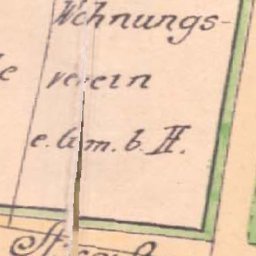 Wohnungs-
verein
e.G.m.b.H.